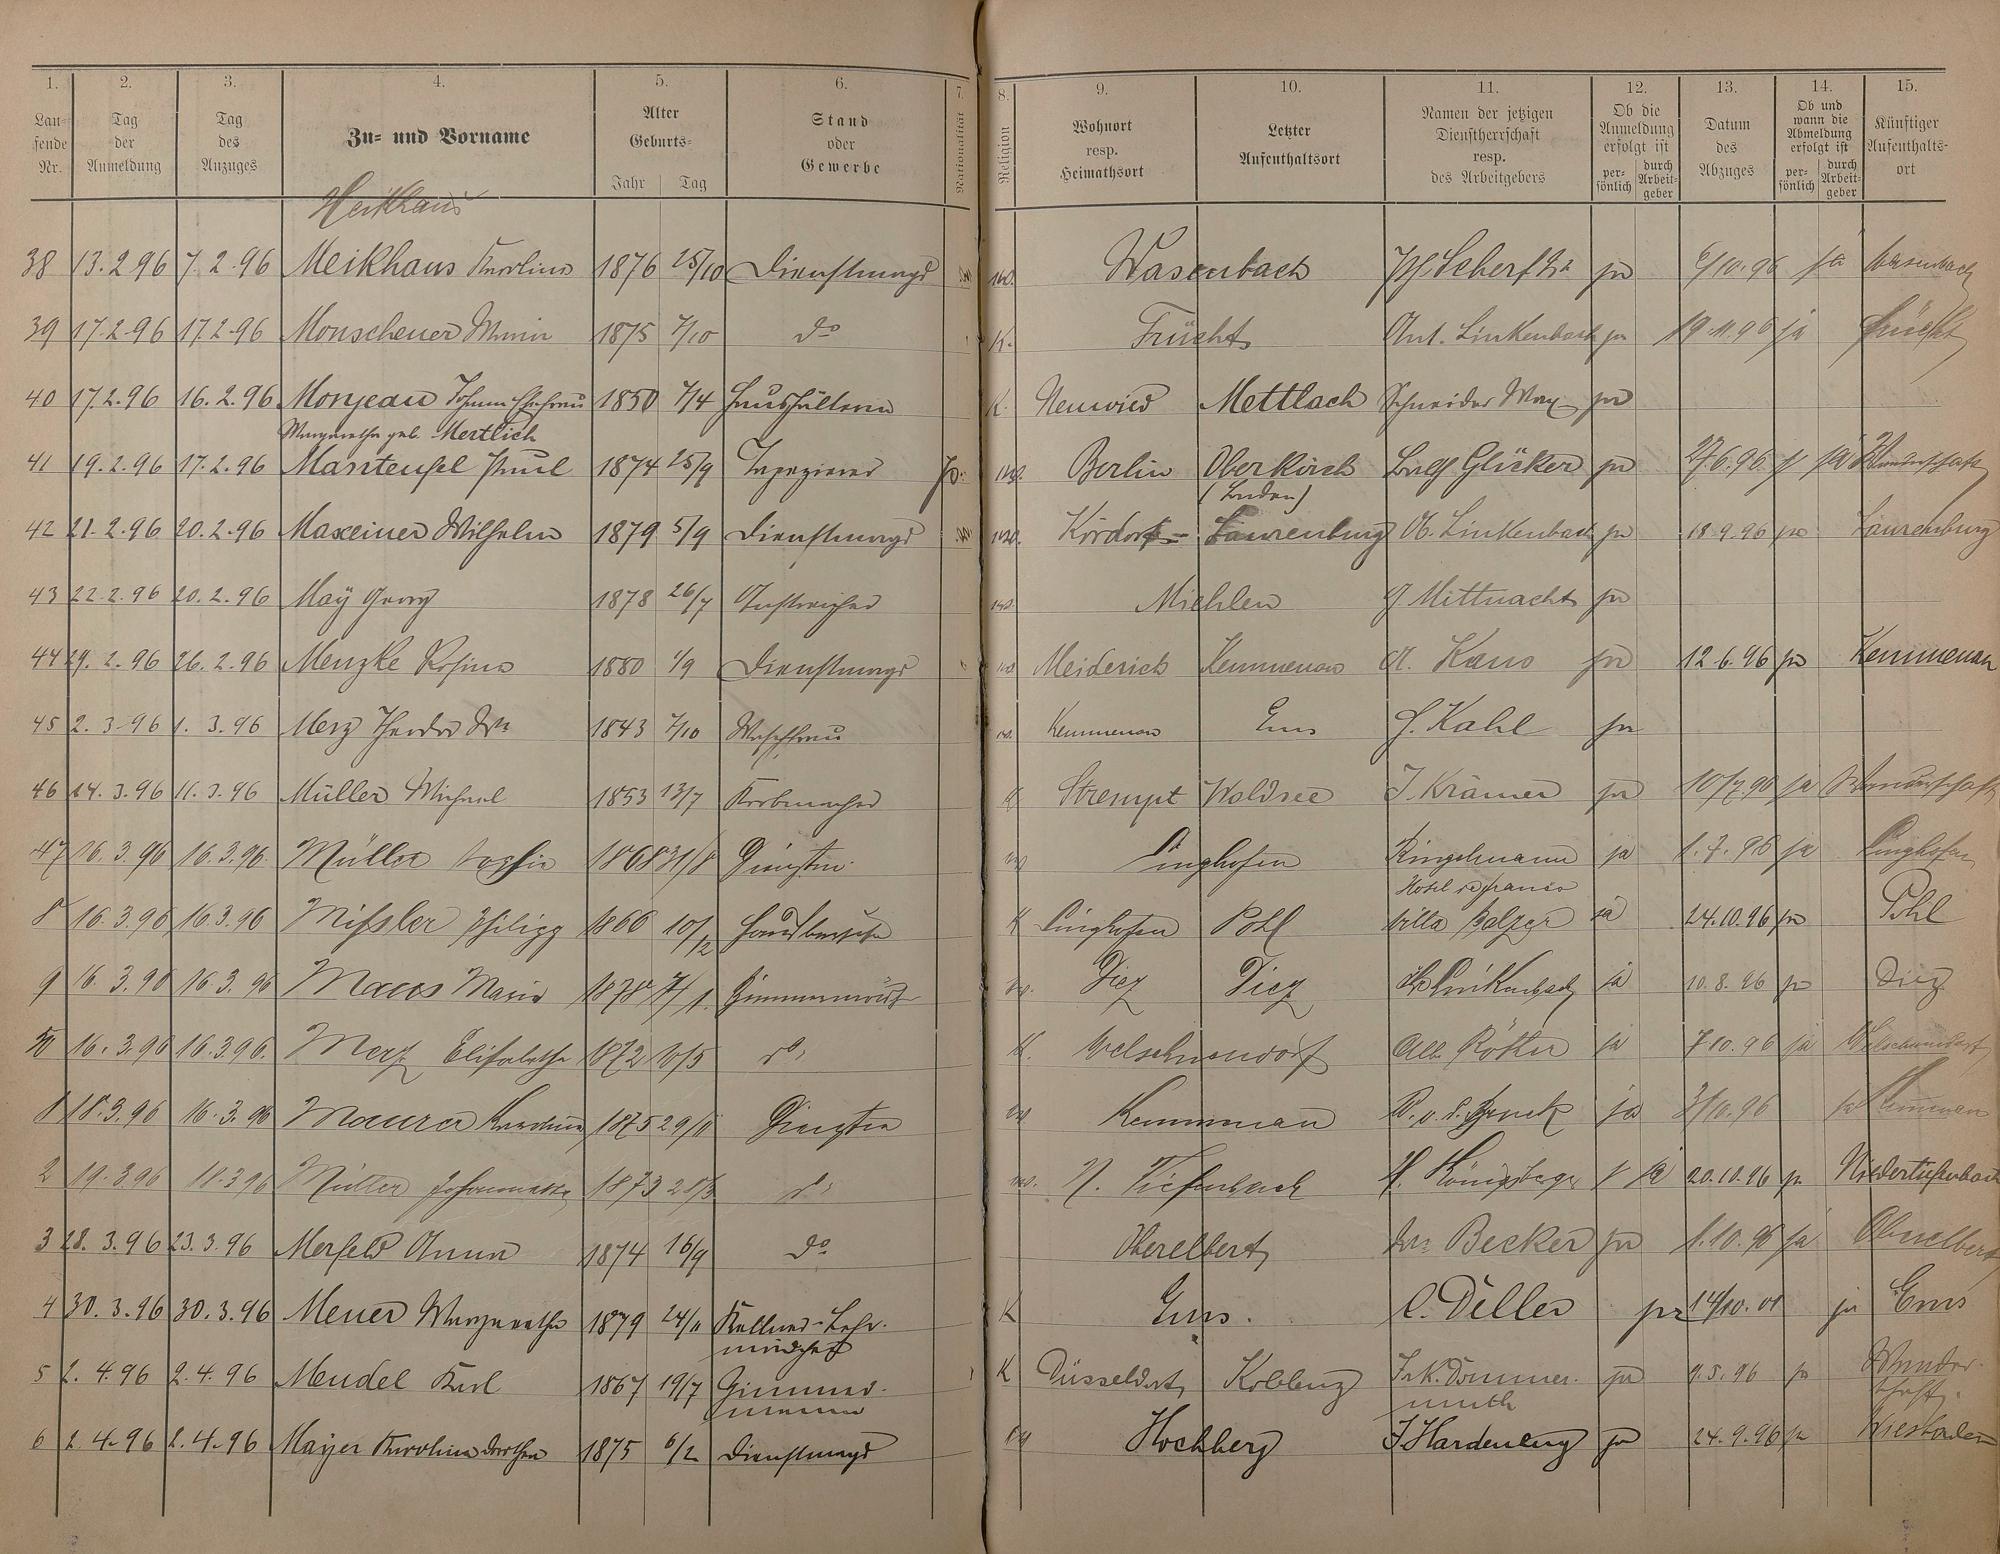 1. 2. 3. 4. 5. 6. 7. 8. 9. 10. 11. 12. 13. 14. 15.
Lau-fende Nr. Tag der Anmeldung Tag des Anzuges Zu- und Vorname Alter Geburts- Jahr Tag Stand oder Gewerbe Nationalität Religion Wohnort resp. Heimathsort Letzter Aufenthaltsort Namen der jetzigen Dienstherrschaft resp. des Arbeitgebers Ob die Anmeldung erfolgt ist per-sönlich durch Arbeit-geber Datum des Abzuges Ob und wann die Abmeldung erfolgt ist per-sönlich durch Arbeit-geber Künftiger Aufenthalts-ort
Meikhaus
38 13.2 96 7.2.96 Meikhaus Karolina 1876 25/10 Dienstmagd Wasenbach ja 6/10.96 ja Wasenbach
39 17.2.96 17.2.96 Monscheuer Maria 1875 7/10 do K. Frücht Ant. Linkenbach ja 19.11.96 ja Frücht
40 17.2.96 16.2.96 Monjeau Johann Ehefrau 1850 7/4 Haushälterin K. Neuwied Mettlach Schneider Max ja
Margaretha geb. Mertlich
41 19.2.96 17.2.96 Manteufel Paul 1874 25/9 Tapezierer Berlin Oberkirch Glücker ja 27.6.96 ja Wanderschaft
(Baden)
42 21.2.96 20.2.96 Maxeiner Wilhelm 1879 5/9 Dienstmagd Kördorf Laurenburg Linkenbach ja 18.9.96 ja Laurenburg
43 22.2.96 20.2.96 May Georg 1878 26/7 Anstreicher Miehlen G Mittnacht ja
44 29.2.96 26.2.96 Menzke Rosina 1880 1/9 Dienstmagd Meiderich Kemmenau A. Kaus ja 12.6.96 ja Kemmenau
45 2.3.96 1.3.96 Merz Theodor Ww 1843 7/10 Waschfrau Kemmenau Ems Kahl ja
46 14.3.96 11.3.96 Müller Michael 1853 13/7 Korbmacher K Strempt Waldsee J. Krämer ja 10/7 96 ja Wanderschaft
47 16.3.96 16.3.96 Müller Sophie 1868 31/8 Dienstm. Singhofen Ringelmann ja 1.7.96 ja Singhofen
Hotel de france
8 16.3.96 16.3.96 Mißler Philipp 1866 10/2 Hausbursche K Singhofen Pohl Villa Balzer ja 24.10.96 ja Pohl
9 16.3.96 16.3.96 Maus Maria 1878 7/1 Zimmermädch Diez Diez Linkenbach ja 10.8.96 ja Diez
50 16.3.96 16.3.96. Merz Elisabetha 1872 10/5 do K. Welschneudorf Alb. Röther ja 7.10.96 ja Welschneudorf
1 18.3.96 16.3.96 Maurer Karoline 1875 29/11 Dienstm Kemmenau ja 3/10.96 ja Kemmenau
2 19.3.96 18.3 96 Müller Johannette 1873 28/3 do N. Tiefenbach H. Königsberger ja 20.10.96 ja Niedertiefenbach
3 28.3.96 23.3.96 Merfeld Anna 1874 16/9 do Oberelbert Becker ja 1.10.96 ja Oberelbert
4 30.3.96 30.3.96 Meuer Margaretha 1879 24/11 Kellner-Lehr- K Ems. C. Deller ja 14/10.01 ja Ems
mädchen
5 2.4.96 2.4.96 Mendel Karl 1867 19/7 Zimmer- K Düsseldorf Koblenz Frk. Dommer- ja 9.5.96 ja Wander-
mann muth schaft.
6 2.4.96 2.4.96 Mayer Karolina Dorothea 1875 6/2 Dienstmagd Hochberg J. Hardeneng ja 24.9.96 ja Wiesbaden